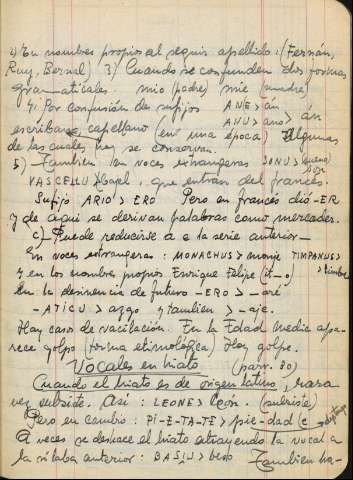 2) En nombres propios al seguir apellido: (Fernán,
Ruy, Bernal) 3) Cuando se confunden dos formas
gramaticales. mío (padre) mie (madre)
4. Por confusión de sufijos ANE > án
ANU > ano > án
escribane, capellano (en una época algunas
de las cuales hoy se conservan.
5) También en voces extranjeras SONU > (bueno)
son
VASCELLU > bajel, que entran del francés.
Sufijo ARIO > ERO Pero en francés dió -ER
y de aquí se derivan palabras como mercader.
c) Puede reducirse a e la serie anterior_
En voces extranjeras: MONACHUS > monje TIMPANUS >
> timbre
y en los nombres propios Enrique Felipe (it - o)
En la desinencia de futuro -ERO > -are
-ATICU > azgo y también > -aje.
Hay casos de vacilación. En la Edad Media apa-
rece golpo (forma etimológica) Hoy golpe.
Vocales en hiato (parr. 30)
Cuando el hiato es de origen latino, rara
vez subsiste. Así: LEONE > león. (subsiste)
Pero en cambio: PI-E-TA-TE > pie-dad (e > diptongo
A veces se deshace el hiato atrayendo la vocal a
la sílaba anterior: BASIU > beso También ha-